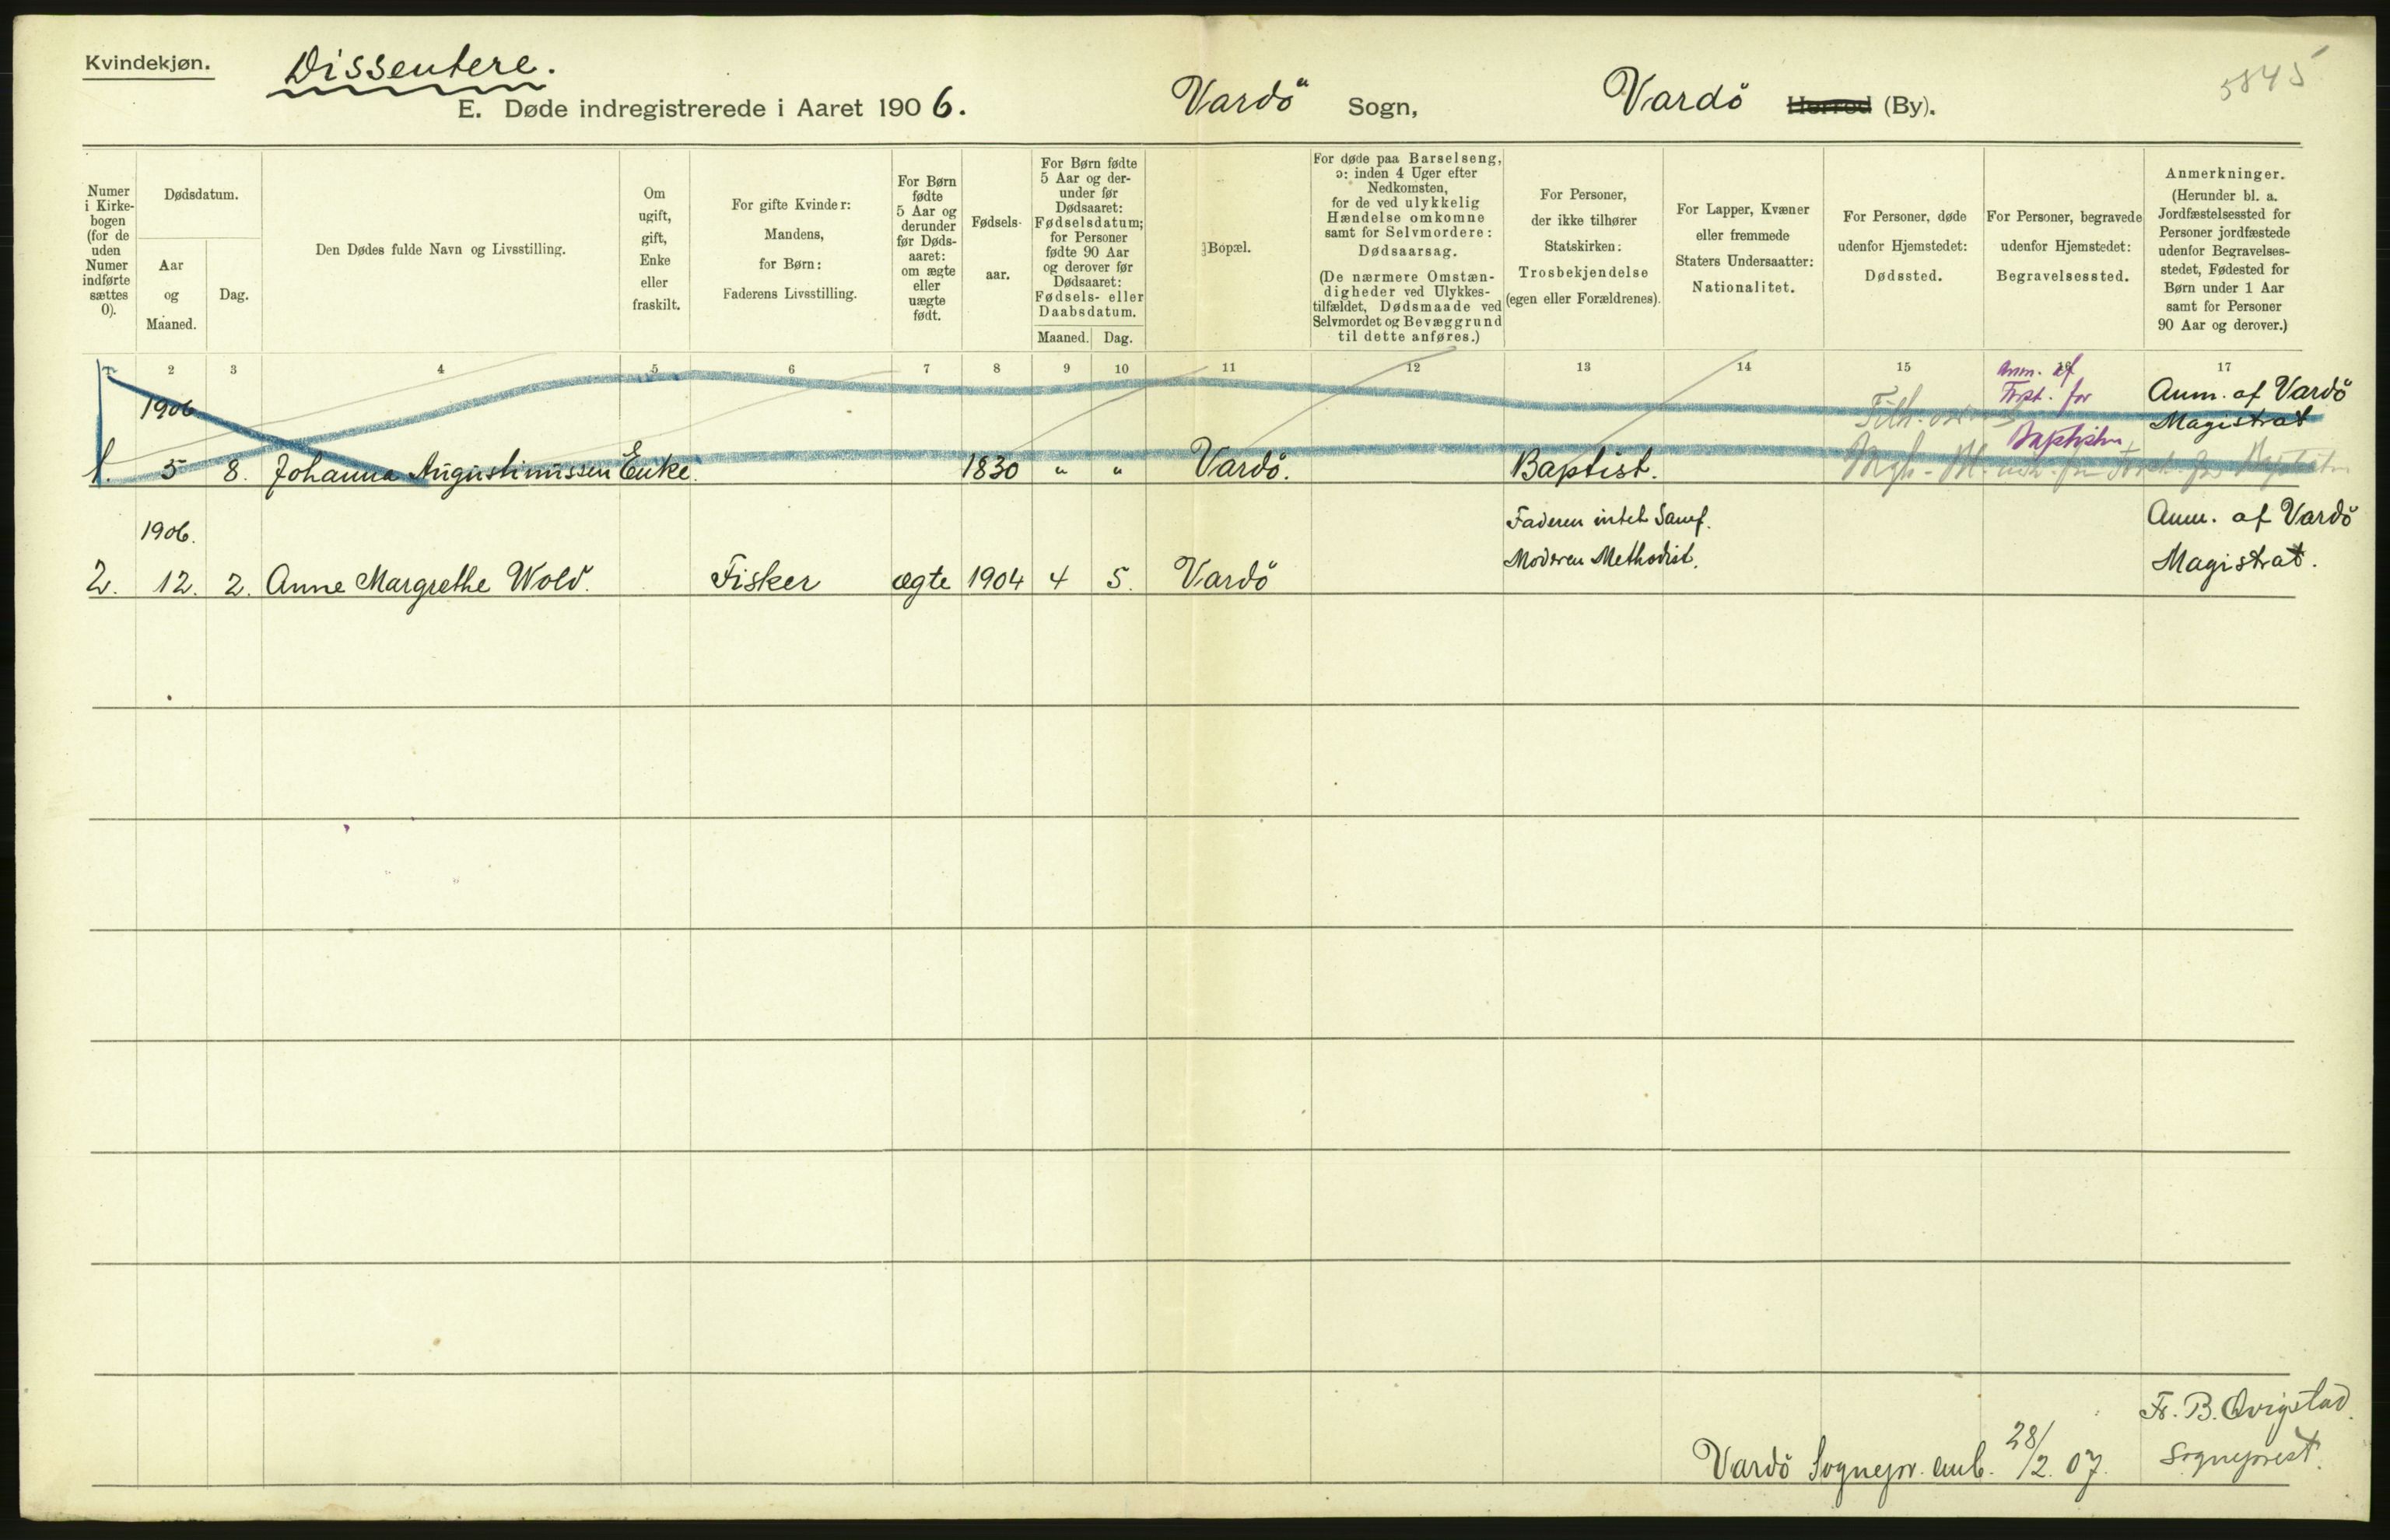 Kvindekjøn.
Dissentere.
5845
E. Døde indregistrerede i Aaret 1906.
Vardö Sogn,
Vardö Herred (By).
Numer
i Kirke-
bogen
(for de
uden
Numer
indførte
sættes
0).
Dødsdatum.
Aar
og
Maaned.
Dag.
Den Dødes fulde Navn og Livsstilling.
Om
ugift,
gift,
Enke
eller
fraskilt.
For gifte Kvinder:
Mandens,
for Børn:
Faderens Livsstilling.
For Børn
fødte
5 Aar og
derunder
før Døds-
aaret:
om ægte
eller
uægte
født.
Fødsels-
aar.
For Børn fødte
5 Aar og der-
under før
Dødsaaret:
Fødselsdatum;
for Personer
fødte 90 Aar
og derover før
Dødsaaret:
Fødsels- eller
Daabsdatum.
Maaned. Dag.
Bopæl.
For døde paa Barselseng,
ɔ: inden 4 Uger efter
Nedkomsten,
for de ved ulykkelig
Hændelse omkomne
samt for Selvmordere:
Dødsaarsag.
(De nærmere Omstæn-
digheder ved Ulykkes-
tilfældet, Dødsmaade ved
Selvmordet og Bevæggrund
til dette anføres.)
For Personer,
der ikke tilhører
Statskirken:
Trosbekjendelse
(egen eller Forældrenes).
For Lapper, Kvæner
eller fremmede
Staters Undersaatter:
Nationalitet.
For Personer, døde
udenfor Hjemstedet:
Dødssted.
For Personer, begravede
udenfor Hjemstedet:
Begravelsessted.
Anmerkninger.
(Herunder bl. a.
Jordfæstelsessted for
Personer jordfæstede
udenfor Begravelses-
stedet, Fødested for
Børn under 1 Aar
samt for Personer
90 Aar og derover.)
1 2 3 4 5 6 7 8 9 10 11 12 13 14 15 16 17
1906
Anm. af
Forst. for
Baptister
Anm. af Vardö
Magistrat
1. 5 8. Johanna Augustinussen Enke. 1830 " " Vardö. Baptist.
1906.
Faderen intet Samf.
Moderen Methodist.
Anm. af Vardö
Magistrat.
2. 12. 2. Anne Margrethe Wold. Fisker ægte 1904 4 5. Vardö
Fr. B. Qvigstad.
Sogneprest.
Vardö Sognepr. emb. 28/2. 07.